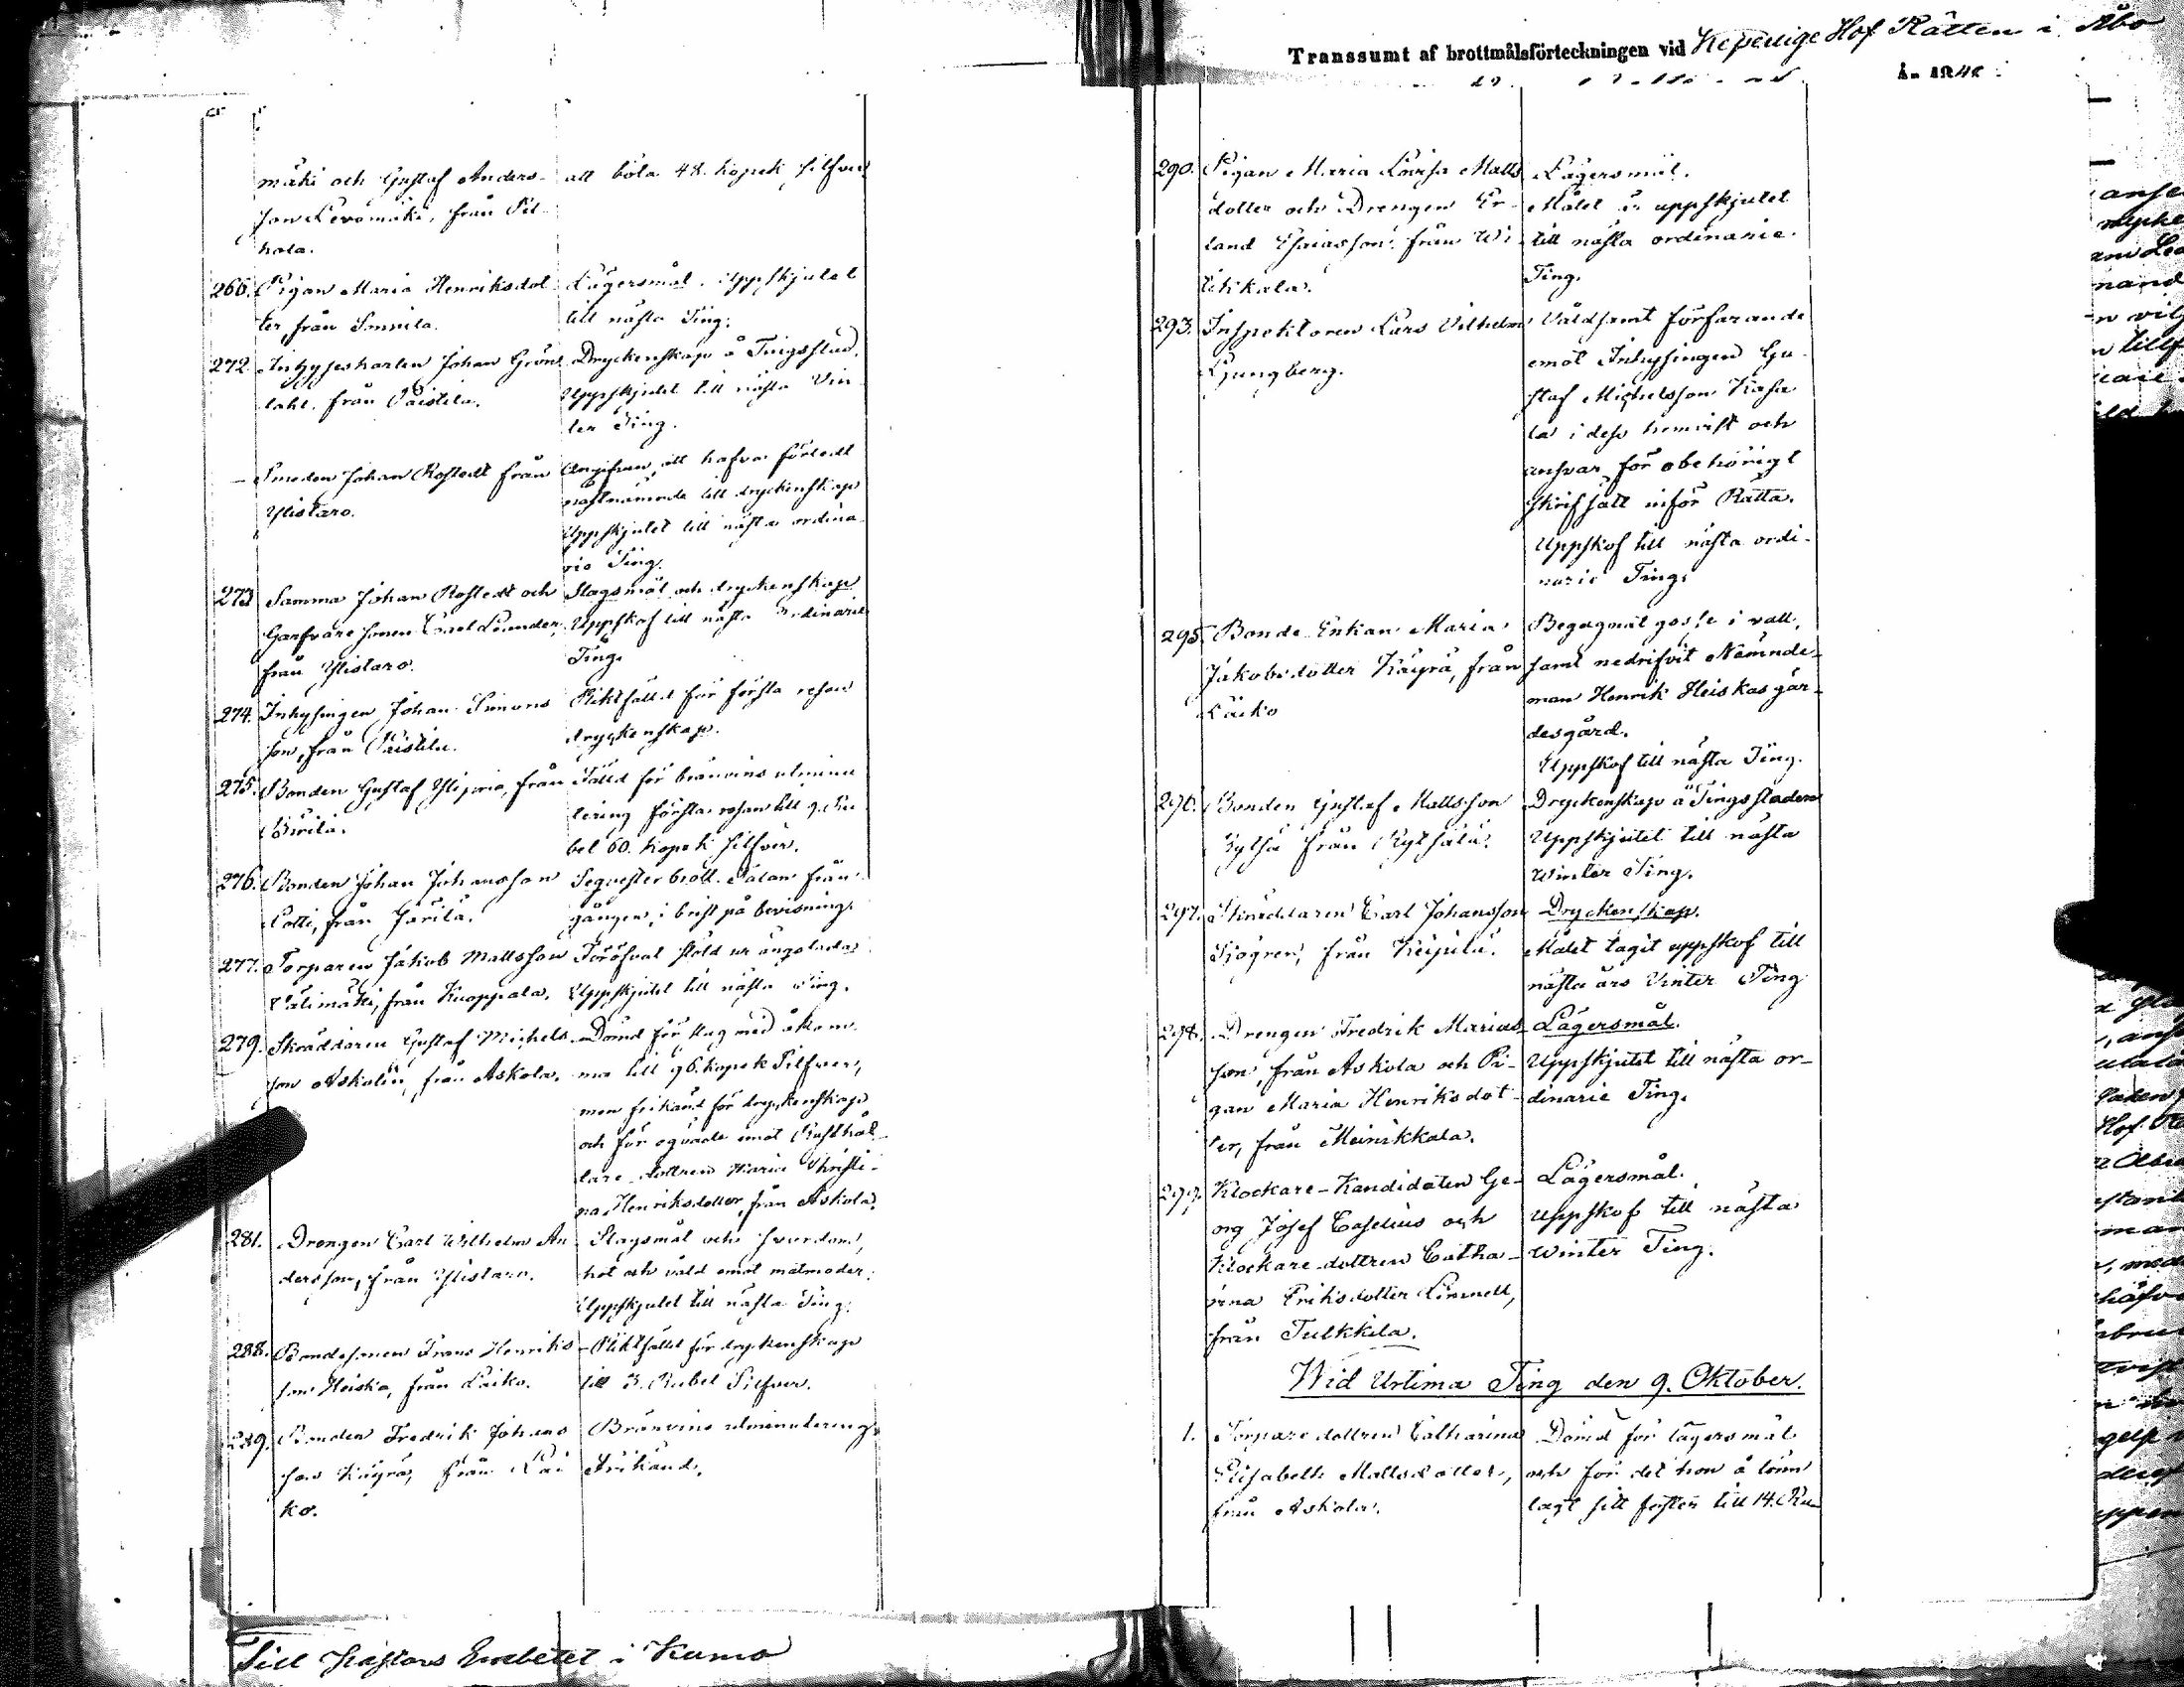 mäki och Gustaf Anders-
son Levomäki, från Pil-
hola.
att böta 48. kopek silfver
266. Pigan Maria Henriksdot-
ter, från Sonnila.
Lägersmål. Uppskjutet
till nästa Ting.
272. Inhyseskarlen Johan Grön-
dahl, från Päistilä.
Dryckenskap å Tingsstad.
Uppskjutet till nästa Vin-
ter Ting.
— Smeden Johan Rostedt från
Ylistaro.
Angifven, att hafva förledt
nästnämnde till dryckenskap
Uppskjutet till nästa ordina-
rie Ting.
273 Samma Johan Rostedt och
Garfvare sonen Carl Leander,
från Ylistaro.
Slagsmål och dryckenskap
Uppskof till nästa ordinarie
Ting.
274. Inhysingen Johan Simons
son, från Päistilä.
Pliktfälld för första resan
dryckenskap.
275. Bonden Gustaf Ylijoria, från
Fälld för bränvins utminu
tering första resan till 9. Ru
bel 60. kopek silfver.
276. Bonden Johan Johansson
Potti, från Järilä.
Sequesterbrott. Talan från
gången, i brist på bevisning.
277. Torparen Jakob Mattsson
Välimäki, från Kuoppala.
Föröfvat stöld ur ängslada
Uppskjutet till nästa Ting.
279. Skräddaren Gustaf Michels
son Askolin, från Askola.
Dömd för slag med åkom-
ma till 96. kopek Silfver,
men frikänd för dryckenskap
och för oqväde emot Rusthål-
lare dottren Maria Christi-
na Henriksdotter, från Askola.
281. Drengen Carl Wilhelm An
dersson, från Ylistaro.
Slagsmål och svordom,
hot och våld emot matmoder.
Uppskjutet till nästa Ting.
288. Bondesonen Frans Henriks-
son Heiska, från Läiko.
Pliktfälld för dryckenskap
till 3. Rubel Silfver.
289. Bonden Fredrik Johans
son Käyrä, från Läi
ko.
Bränvins utminutering.
Frikänd.
Till Pastors Embetet i Kumo
Transsumt af brottmålsförteckningen vid Kejserlige Hof Rätten i Åbo
år 184
290. Pigan Maria Lovisa Matts
dotter och Drengen Er-
land Esaiasson från Wi-
tikkala.
Lägersmål.
Målet är uppskjutet
till nästa ordinarie
Ting.
293. Inspektoren Lars Vilhelm
Ljungberg.
Våldsamt förfarande
emot Inhysingen Gu-
staf Michelsson Kasa
la i dess hemvist och
ansvar för obehörigt
skrifsätt inför Rätta.
Uppskof till nästa ordi-
narie Ting.
295. Bonde Enkan Maria
Jakobsdotter Käyrä, från
Läiko
Begagnat gosse i vall,
samt nedrifvit Nämnde-
man Henrik Heiskas gär-
desgård.
Uppskof till nästa Ting.
296. Bonden Gustaf Mattsson
Kytsä från Kytsälä.
Dryckenskap å Tingsstaden
Uppskjutet till nästa
Winter Ting.
297. Skräddaren Carl Johansson
Sjögren, från Keipilä.
Dryckenskap.
Målet tagit uppskof till
nästa års Vinter Ting
298. Drengen Fredrik Marias-
son, från Askola och Pi-
gan Maria Henriksdot-
ter, från Meinikkala.
Lägersmål.
Uppskjutet till nästa or-
dinarie Ting.
299. Klockare-Kandidaten Ge-
org Josef Caselius och
Klockare dottren Catha-
rina Eriksdotter Limnell,
från Tulkkila.
Lägersmål.
Uppskof till nästa
Winter Ting.
Wid Urtima Ting den 9. Oktober.
1. Torpare dottren Catharina
Elisabeth Mattsdotter,
från Askola.
Dömd för lägersmål
och för det hon å lönn
lagt sitt foster till 14. Ru-